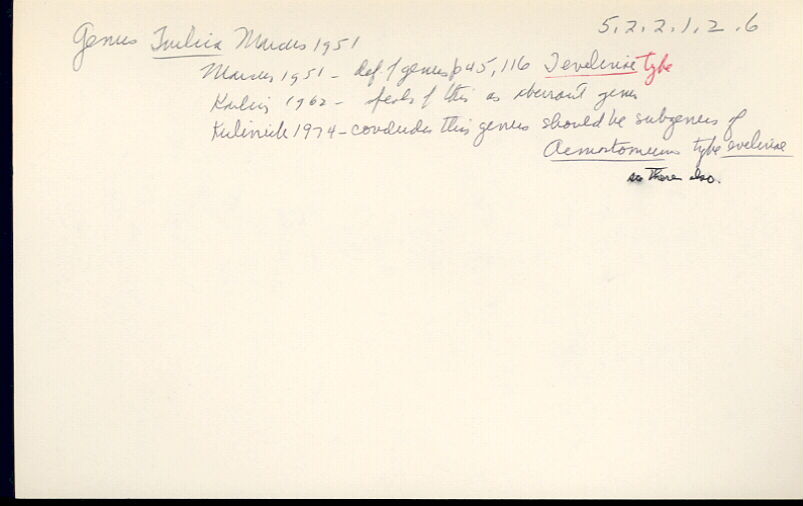 5.2.2.1.2.6
Genus Marcus 1951
Marcus 1951 - def. of genus p 45, 116 evelinae type
Karling 1962 - speaks of this as aberrant genus
Kulinich 1974 - concludes this genus should be subgenus of
Acmostomum type evelinae
see there also.